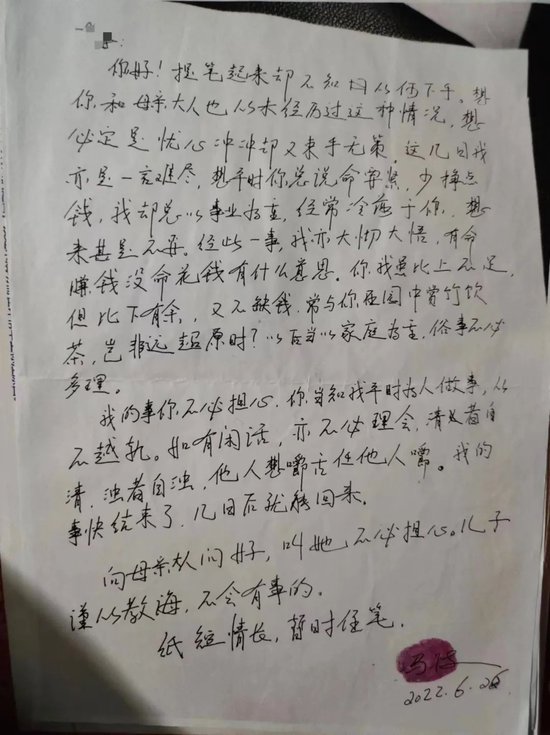 你好！提笔起来却不知由从何下手。想
你和母亲大人也从未经历过这种情况，想
必定是忧心冲冲却又束手无策，这几日我
亦是一言难尽，想平时你总说命要紧，少挣点
钱，我却总以事业为重，经常冷落于你，想
来甚是不再。经此一事，我亦大彻大悟，有命
赚钱没命花钱有什么意思。你我虽比上不足，
但比下有余，又不缺钱，常与你在园中赏竹饮
茶，岂非远超原时？以后当以家庭为重，俗事不必
多理。
我的事你不必担心，你当知我平时为人做事，从
不越轨。如有闲话，亦不必理会，清者自
清，浊者自浊，他人想嚼舌任他人嚼。我的
事快结束了，几日后就能回来。
向母亲大人问好，叫她不必担心。儿子
谨从教诲，不会有事的。
纸短情长，暂时住笔。
2022.6.26